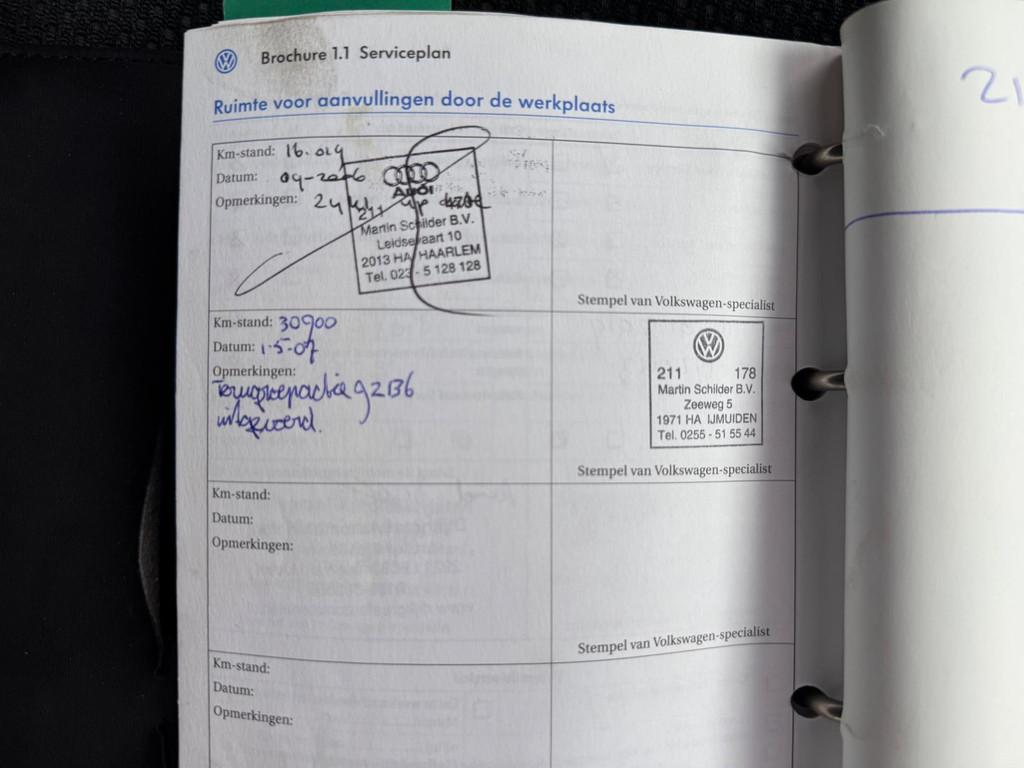 Brochure 1.1 Serviceplan
Ruimte voor aanvullingen door de werkplaats
Km-stand: 16.019
Datum: 04-2006
Opmerkingen:
Audi
211
Martin Schilder B.V.
Leidsevaart 10
2013 HA HAARLEM
Tel. 023 - 5 128 128
Stempel van Volkswagen-specialist
Km-stand: 30900
Datum: 1-5-07
Opmerkingen:
Terugroepactie 92B6
uitgevoerd.
211 178
Martin Schilder B.V.
Zeeweg 5
1971 HA IJMUIDEN
Tel. 0255 - 51 55 44
Stempel van Volkswagen-specialist
Km-stand:
Datum:
Opmerkingen:
Stempel van Volkswagen-specialist
Km-stand:
Datum:
Opmerkingen:
21